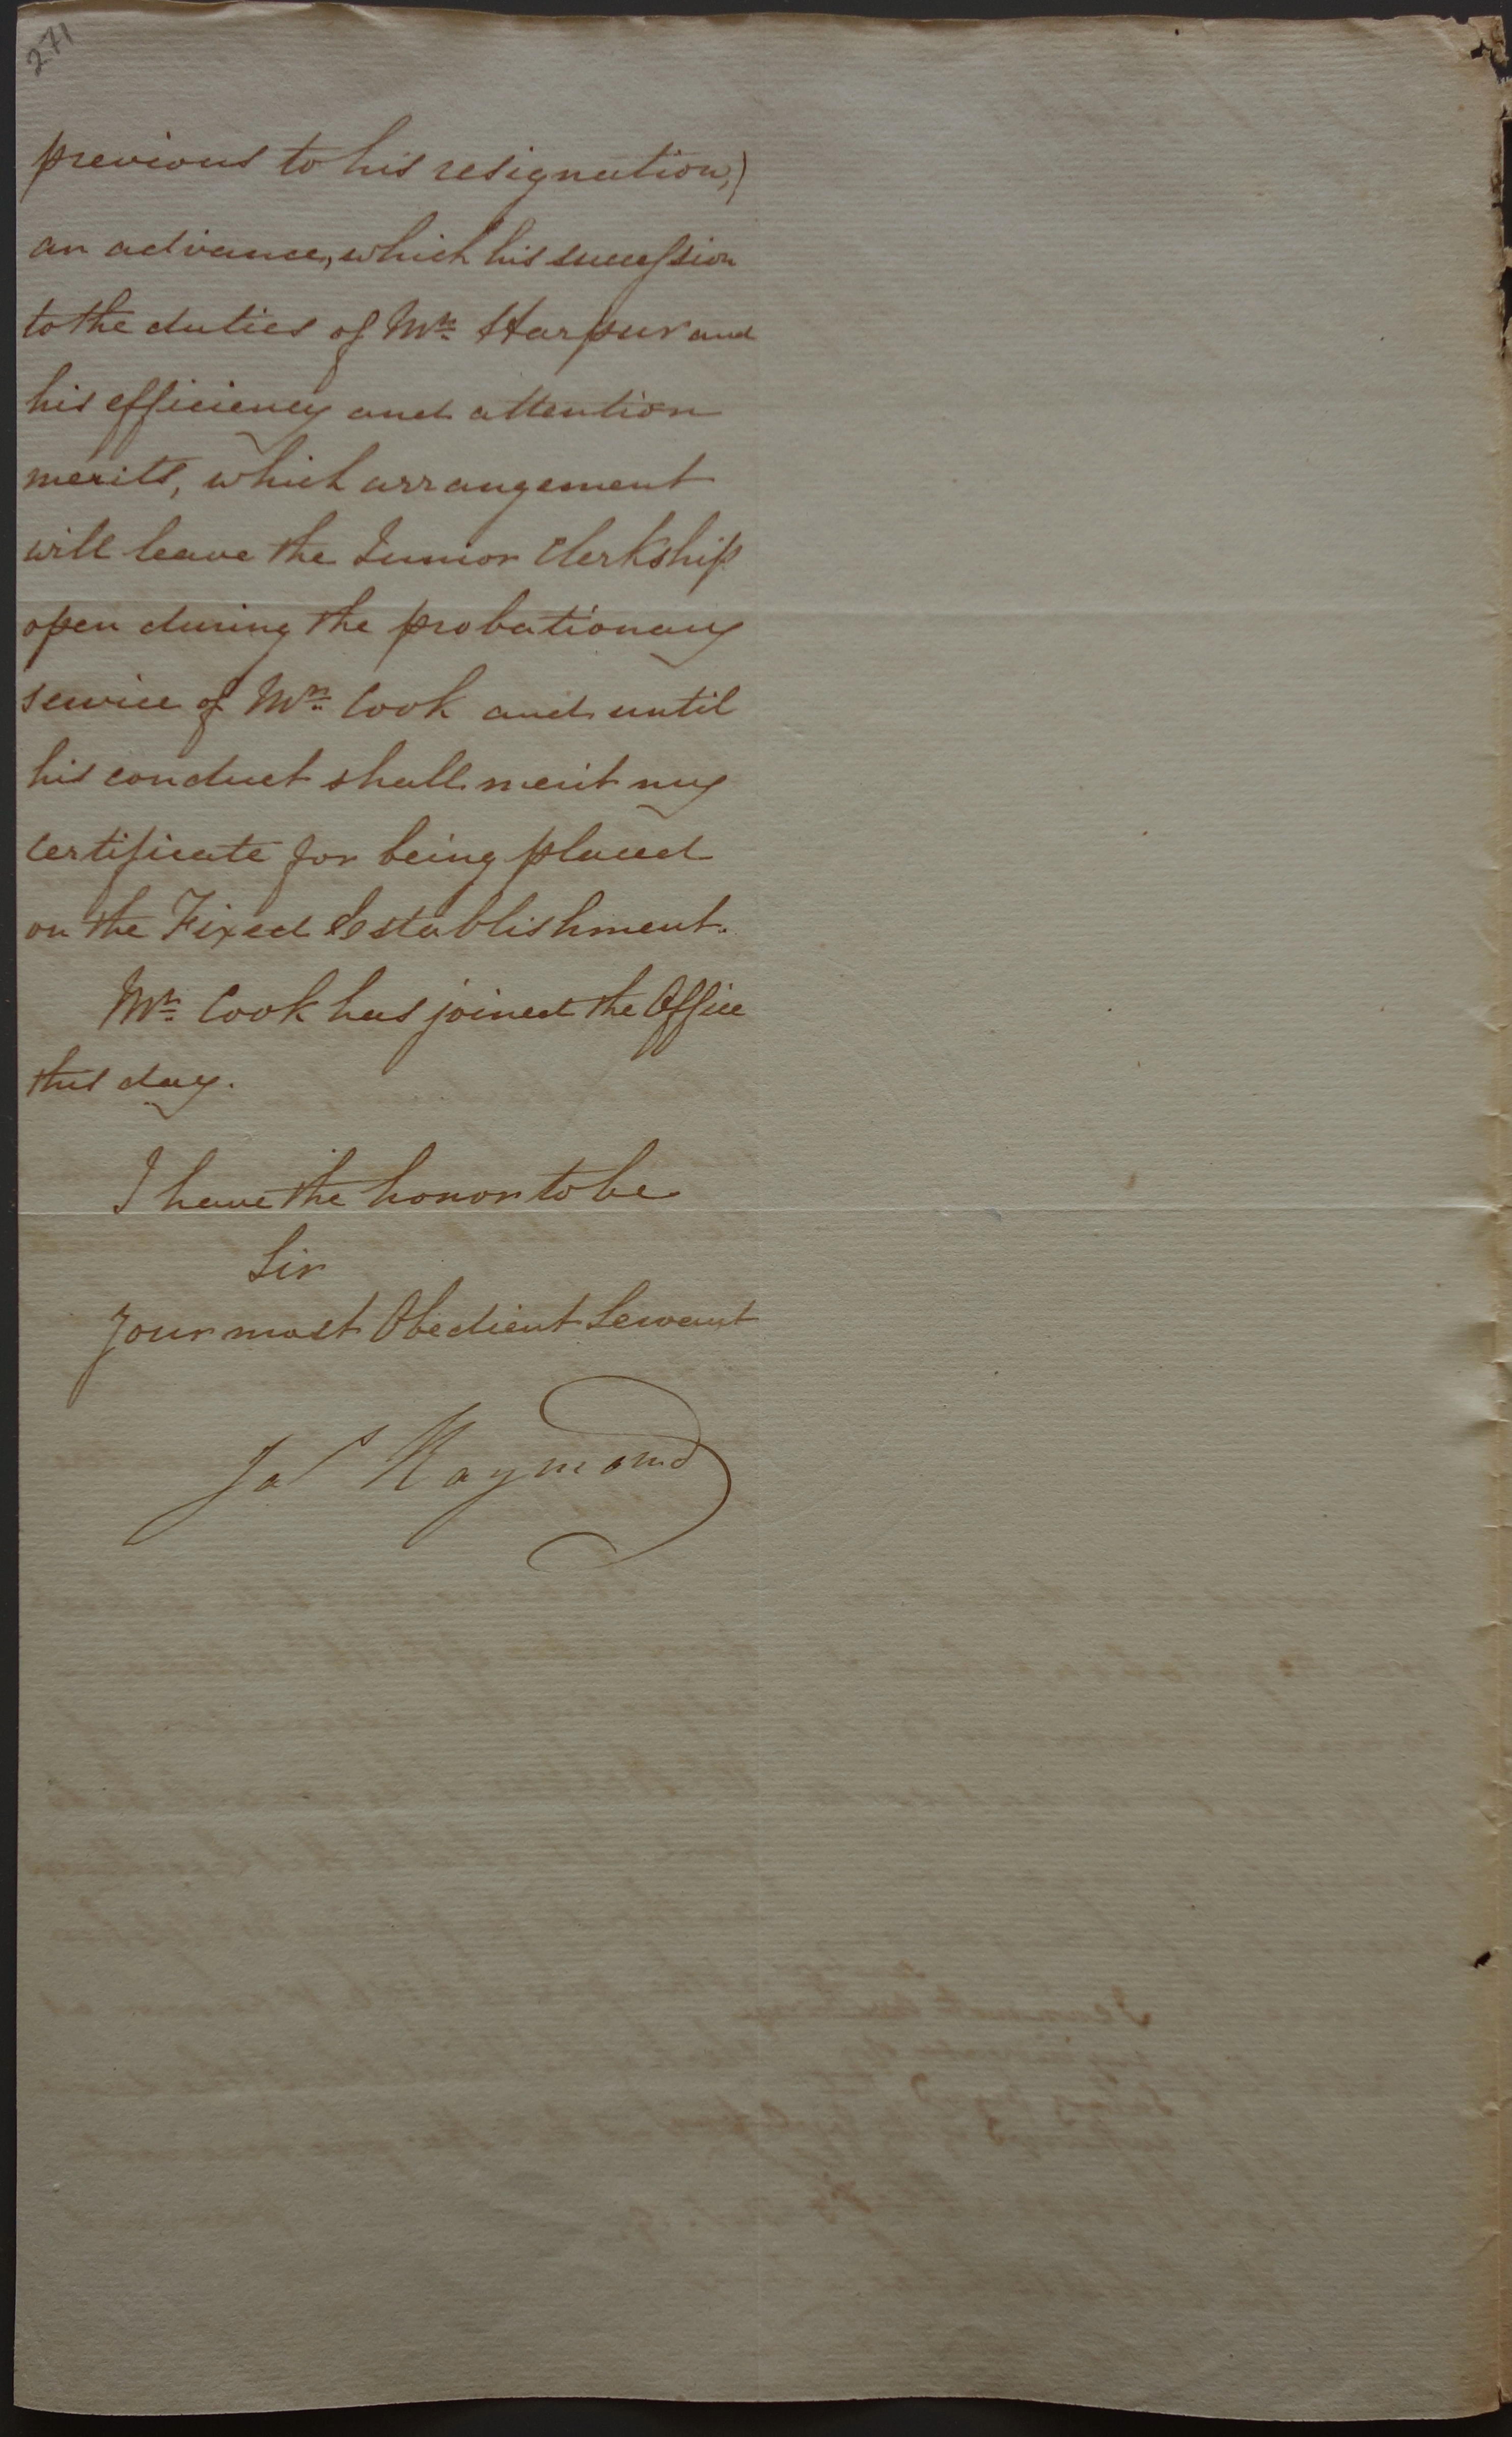 271
previous to his resignation,)
an advance, which his succession
to the duties of Mr. Harpur and
his efficiency and attention
merits, which arrangement
will leave the Junior Clerkship
open during the probationary
service of Mr. Cook and until
his conduct shall merit my
Certificate for being placed
on the Fixed Establishment.
Mr. Cook has joined the Office
this day.
I have the honor to be
Sir
Your most Obedient Servant
Jas Raymond